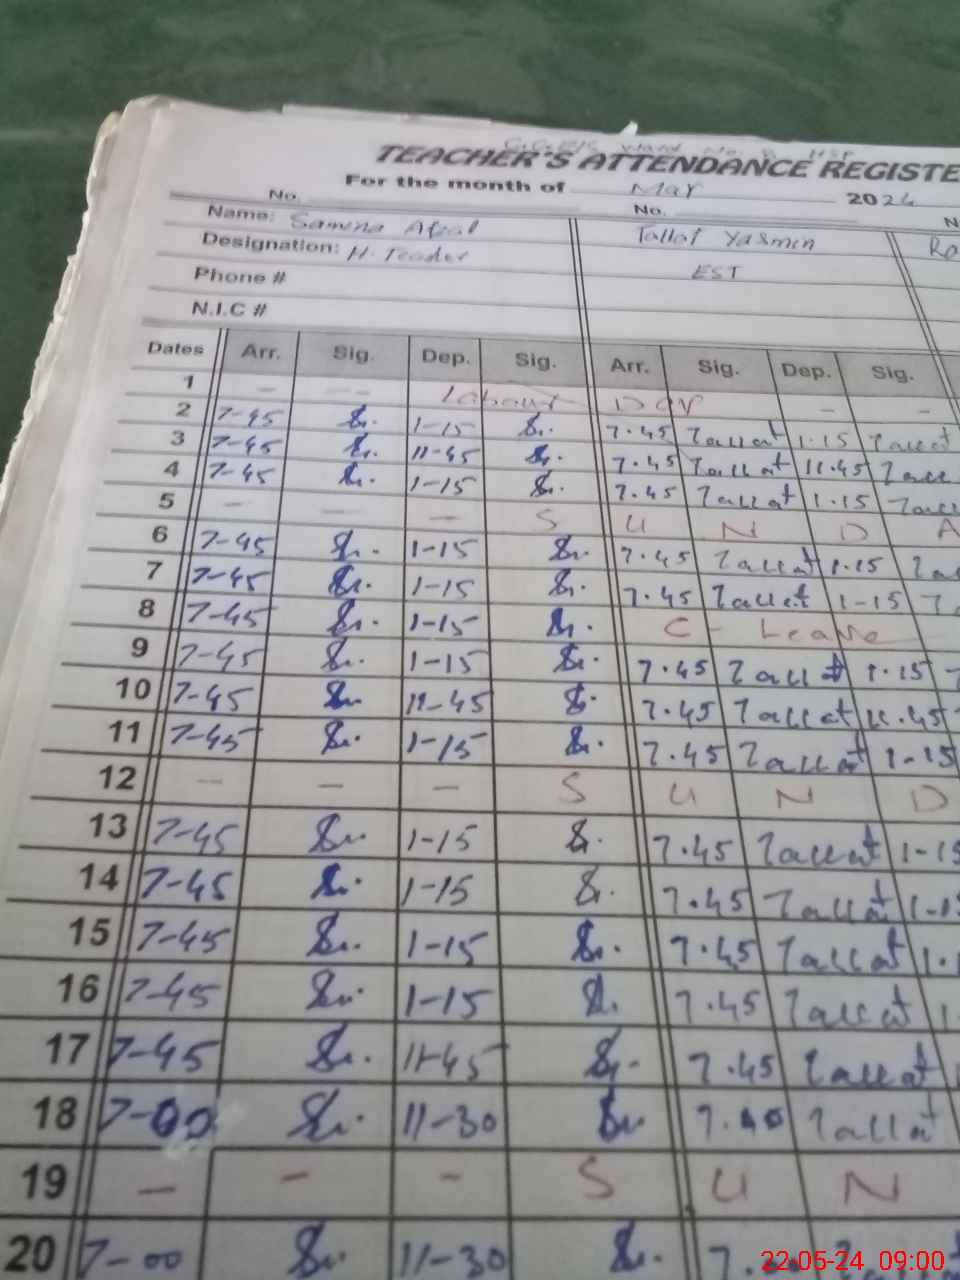 G.G.E/S Ward No. 8 HSP
TEACHER'S ATTENDANCE REGISTE
For the month of May 2024
No. No. N
Name: Samina Afzal Tallat Yasmin
Designation: H. Teacher EST
Phone #
N.I.C #
Dates Arr. Sig. Dep. Sig. Arr. Sig. Dep. Sig.
1 — — Labour Day — —
2 7-45 1-15 7.45 Tallat 1.15 Tallat
3 7-45 11-45 7.45 Tallat 11.45 Tall
4 7-45 1-15 7.45 Tallat 1.15 Tall
5 — — — S U N D A
6 7-45 1-15 7.45 Tallat 1.15 Ta
7 7-45 1-15 7.45 Tallat 1-15 T
8 7-45 1-15 C - Leave
9 7-45 1-15 7.45 Tallat 1.15 T
10 7-45 11-45 7.45 Tallat 11.45
11 7-45 1-15 7.45 Tallat 1-15
12 — — — S U N D
13 7-45 1-15 7.45 Tallat 1-15
14 7-45 1-15 7.45 Tallat 1-1
15 7-45 1-15 7.45 Tallat 1.
16 7-45 1-15 7.45 Tallat 1
17 7-45 11-45 7.45 Tallat
18 7-00 11-30 7.00 Tallat
19 — — — S U N
20 7-00 11-30
22-05-24 09:00